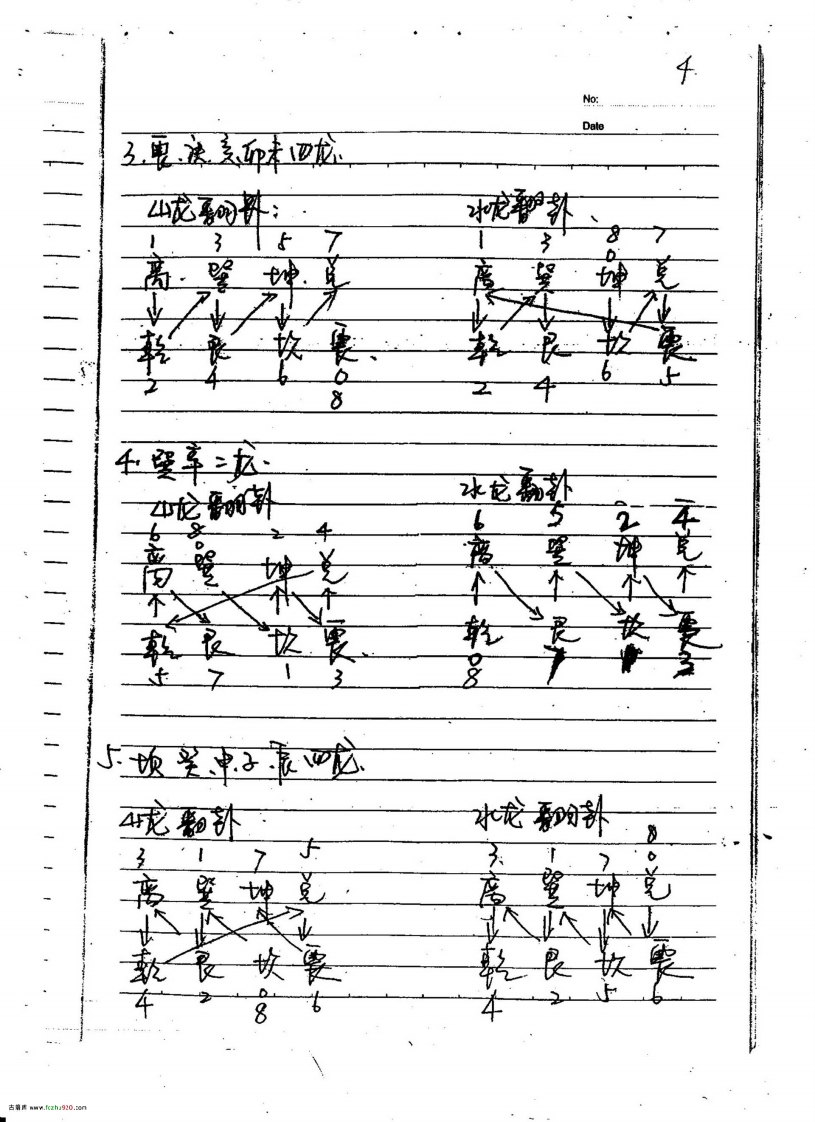 4
No:
Date
3、震、庚、亥、卯未四龙、
山龙翻卦： 水龙翻卦、
1 3 5 7 1 3 8 7
0
离 巽 坤 兑 离 巽 坤 兑
乾 艮 坎 震 乾 艮 坎 震
2 4 6 0 2 4 6 5
8
4、巽辛二龙、
山龙翻卦 水龙翻卦
6 8 2 4 6 5 2 4
0
离 巽 坤 兑 离 巽 坤 兑
乾 艮 坎 震 乾 艮 坎 震
5 7 1 3 0 7 1 3
8
5、坎癸、申子、辰四龙、
山龙翻卦 水龙翻卦
8
3 1 7 5 3 1 7 0
离 巽 坤 兑 离 巽 坤 兑
乾 艮 坎 震 乾 艮 坎 震
4 2 0 6 4 2 5 6
8
www.fozhu920.com